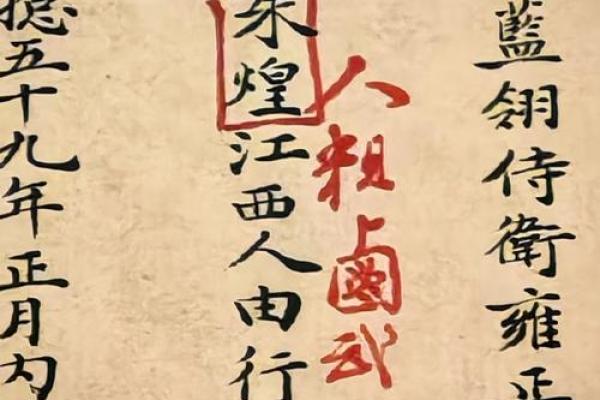 藍翎侍衛雍正
人粗鹵武
朱煌江西人由行
五十九年正月内